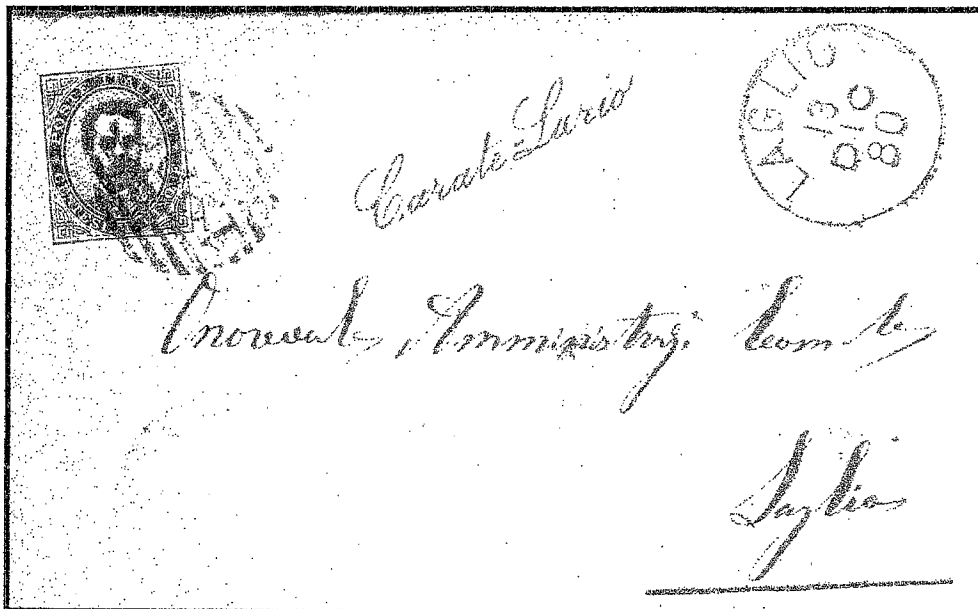 Carate=Lario
LAGLIO
13
DIC
80
Onorevole Amministraz. Com le
Laglio